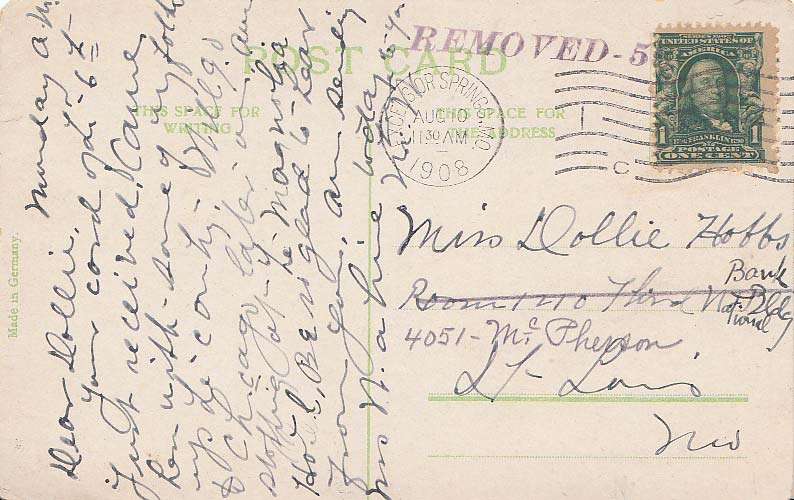 POST CARD
THIS SPACE FOR
WRITING
THIS SPACE FOR
THE ADDRESS
Made in Germany.
REMOVED-5
EXCELSIOR SPRINGS, MO.
AUG 10
11 30 AM
1908
C
SERIES 1902
UNITED STATES OF
AMERICA
1 FRANKLIN 1
POSTAGE
ONE CENT
Miss Dollie Hobbs
Room 1210 Third National
Bank
Bldg
4051- Mc Pherson
St Louis
Mo
Monday a.m.
Dear Dollie,
Your card of the 6th
Just received, Came
here with some of my folks
up the country. Will go
to Chicago later on. Am
stopping at the Magnolia
Hotel, Be so glad to hear
from you, am seeing
a fine today